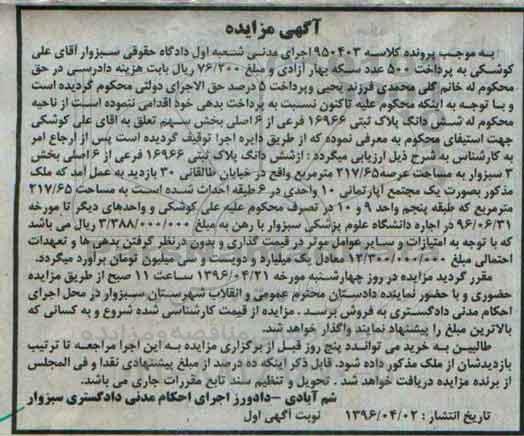 آگهی مزایده
به موجب پرونده کلاسه ۹۵۰۴۰۳ اجرای مدنی شعبه اول دادگاه حقوقی سبزوار آقای علی
کوشکی به پرداخت ۵۰۰ عدد سکه بهار آزادی و مبلغ ۷۶/۲۰۰ ریال بابت هزینه دادرسی در حق
محکوم له خانم گلی محمدی فرزند یحیی وپرداخت ۵ درصد حق الاجرای دولتی محکوم گردیده است
و با توجه به اینکه محکوم علیه تاکنون نسبت به پرداخت بدهی خود اقدامی ننموده است از ناحیه
محکوم له شش دانگ پلاک ثبتی ۱۶۹۶۶ فرعی از ۶ اصلی بخش سهم تعلق به اقای علی کوشکی
جهت استیفای محکوم به معرفی نموده که از طریق دایره اجرا توقیف گردیده است پس از ارجاع امر
به کارشناس به شرح ذیل ارزیابی میگردد : ازشش دانگ پلاک ثبتی ۱۶۹۶۶ فرعی از ۶ اصلی بخش
۳ سبزوار به مساحت عرصه ۲۱۷/۶۵ مترمربع واقع در خیابان طالقانی ۳۰ بازدید به عمل آمد که ملک
مذکور بصورت یک مجتمع اپارتمانی ۱۰ واحدی در ۶ طبقه احداث شده است به مساحت ۲۱۷/۶۵
مترمربع که طبقه پنجم واحد ۹ و ۱۰ در تصرف محکوم علیه علی کوشکی و واحدهای دیگر تا مورخه
۹۶/۰۶/۳۱ در اجاره دانشگاه علوم پزشکی سبزوار با رهن به مبلغ ۳/۳۸۸/۰۰۰/۰۰۰ ریال می باشد
که با توجه به امتیازات و سایر عوامل موثر در قیمت گذاری و بدون درنظر گرفتن بدهی ها و تعهدات
احتمالی مبلغ ۱۲/۳۰۰/۰۰۰/۰۰۰ معادل یک میلیارد و دویست و سی میلیون تومان برآورد میگردد.
مقرر گردید مزایده در روز چهارشنبه مورخه ۱۳۹۶/۰۴/۲۱ ساعت ۱۱ صبح از طریق مزایده
حضوری و با حضور نماینده دادستان محترم عمومی و انقلاب شهرستان سبزوار در محل اجرای
احکام مدنی دادگستری به فروش برسد . مزایده از قیمت کارشناسی شده شروع و به کسانی که
بالاترین مبلغ را پیشنهاد نمایند واگذار خواهد شد.
طالبین به خرید می توانند پنج روز قبل از برگزاری مزایده به این اجرا مراجعه تا ترتیب
بازدیدشان از ملک مذکور داده شود. قابل ذکر اینکه ده درصد از مبلغ پیشنهادی نقدا و فی المجلس
از برنده مزایده دریافت خواهد شد . تحویل و تنظیم سند تابع مقررات جاری می باشد.
شم آبادی -دادورز اجرای احکام مدنی دادگستری سبزوار
تاریخ انتشار : ۱۳۹۶/۰۴/۰۲ نوبت آگهی اول